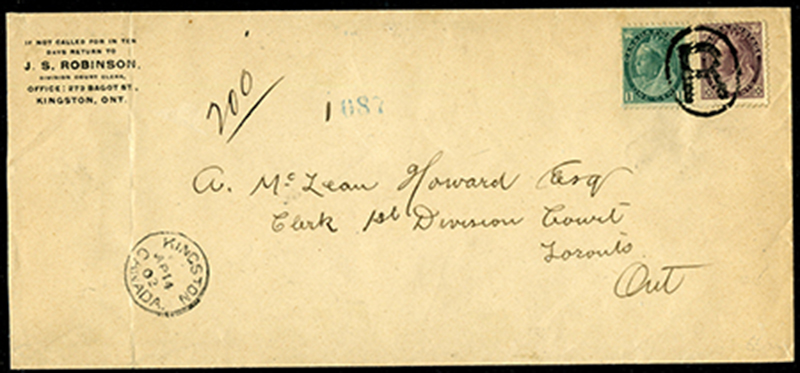 IF NOT CALLED FOR IN TEN
DAYS RETURN TO
J. S. ROBINSON,
DIVISION COURT CLERK,
OFFICE: 273 BAGOT ST.,
KINGSTON, ONT.
200
1087
R
1
A. McLean Howard Esq
Clerk 1st Division Court
Toronto
Ont
KINGSTON
AP 14
02
CANADA.